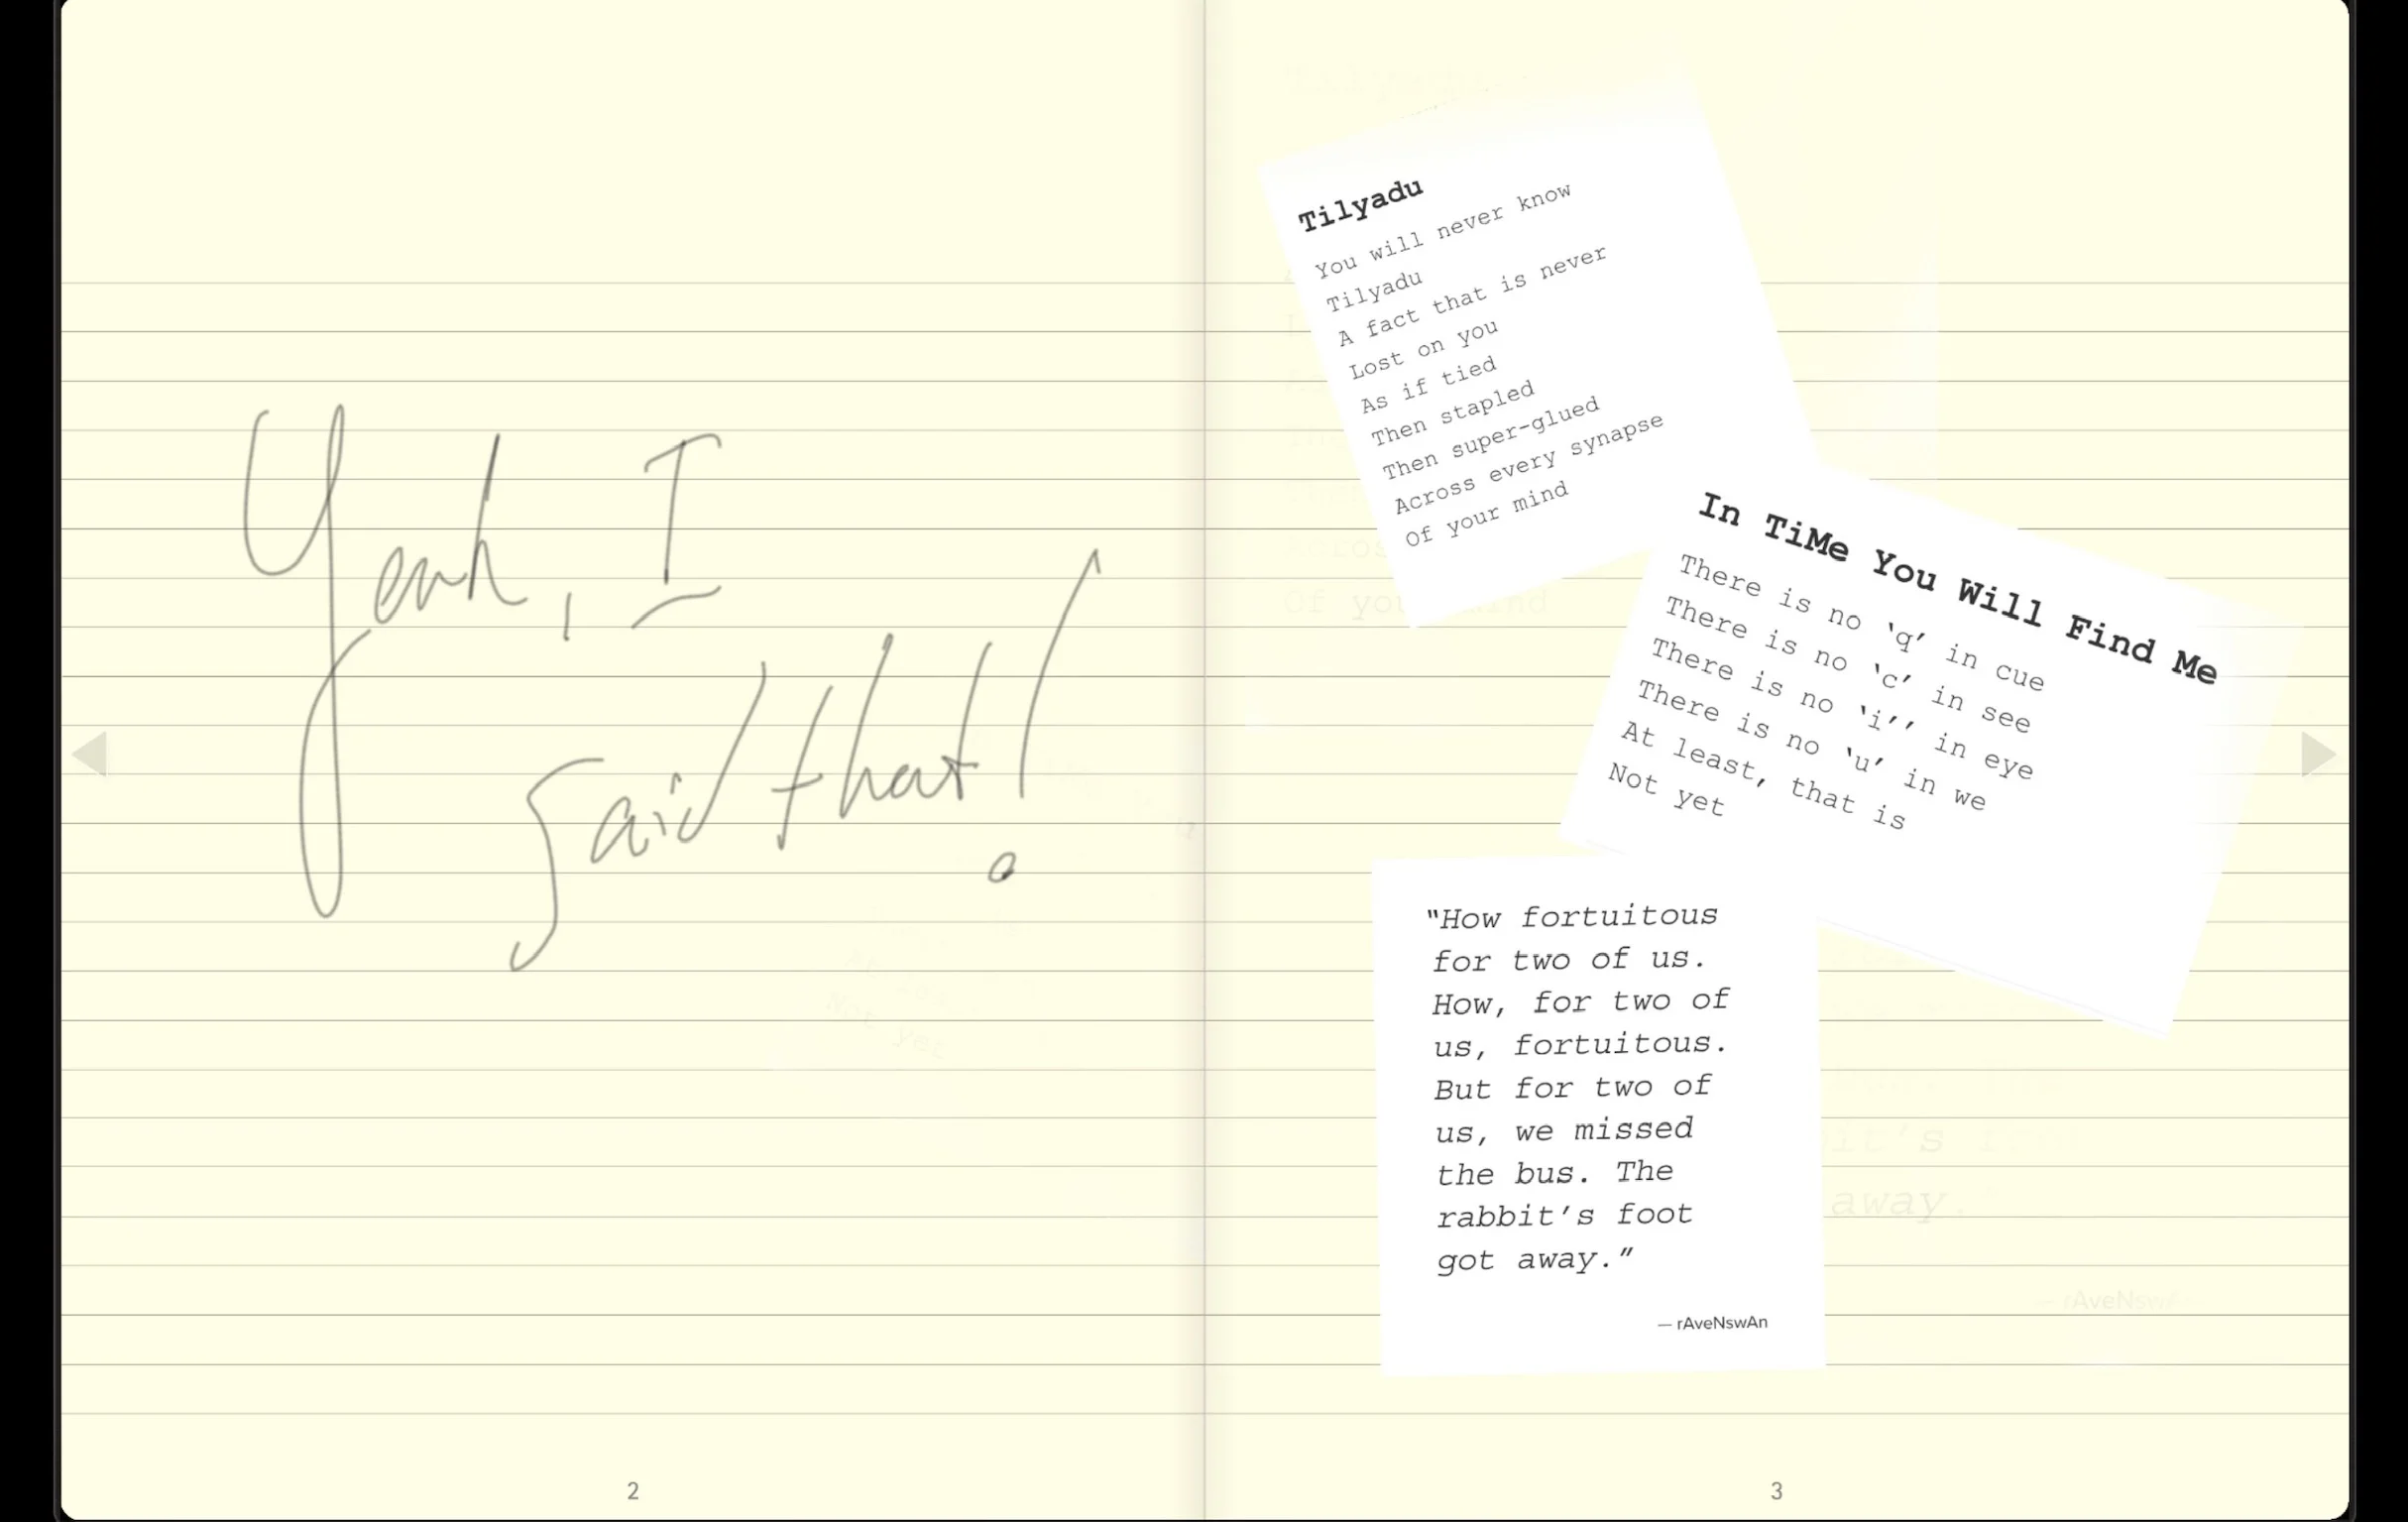 Yeah, I
said that!
Tilyadu
You will never know
Tilyadu
A fact that is never
Lost on you
As if tied
Then stapled
Then super-glued
Across every synapse
Of your mind
In TiMe You Will Find Me
There is no ‘q’ in cue
There is no ‘c’ in see
There is no ‘i’’ in eye
There is no ‘u’ in we
At least, that is
Not yet
"How fortuitous
for two of us.
How, for two of
us, fortuitous.
But for two of
us, we missed
the bus. The
rabbit’s foot
got away.”
— rAveNswAn
2
3